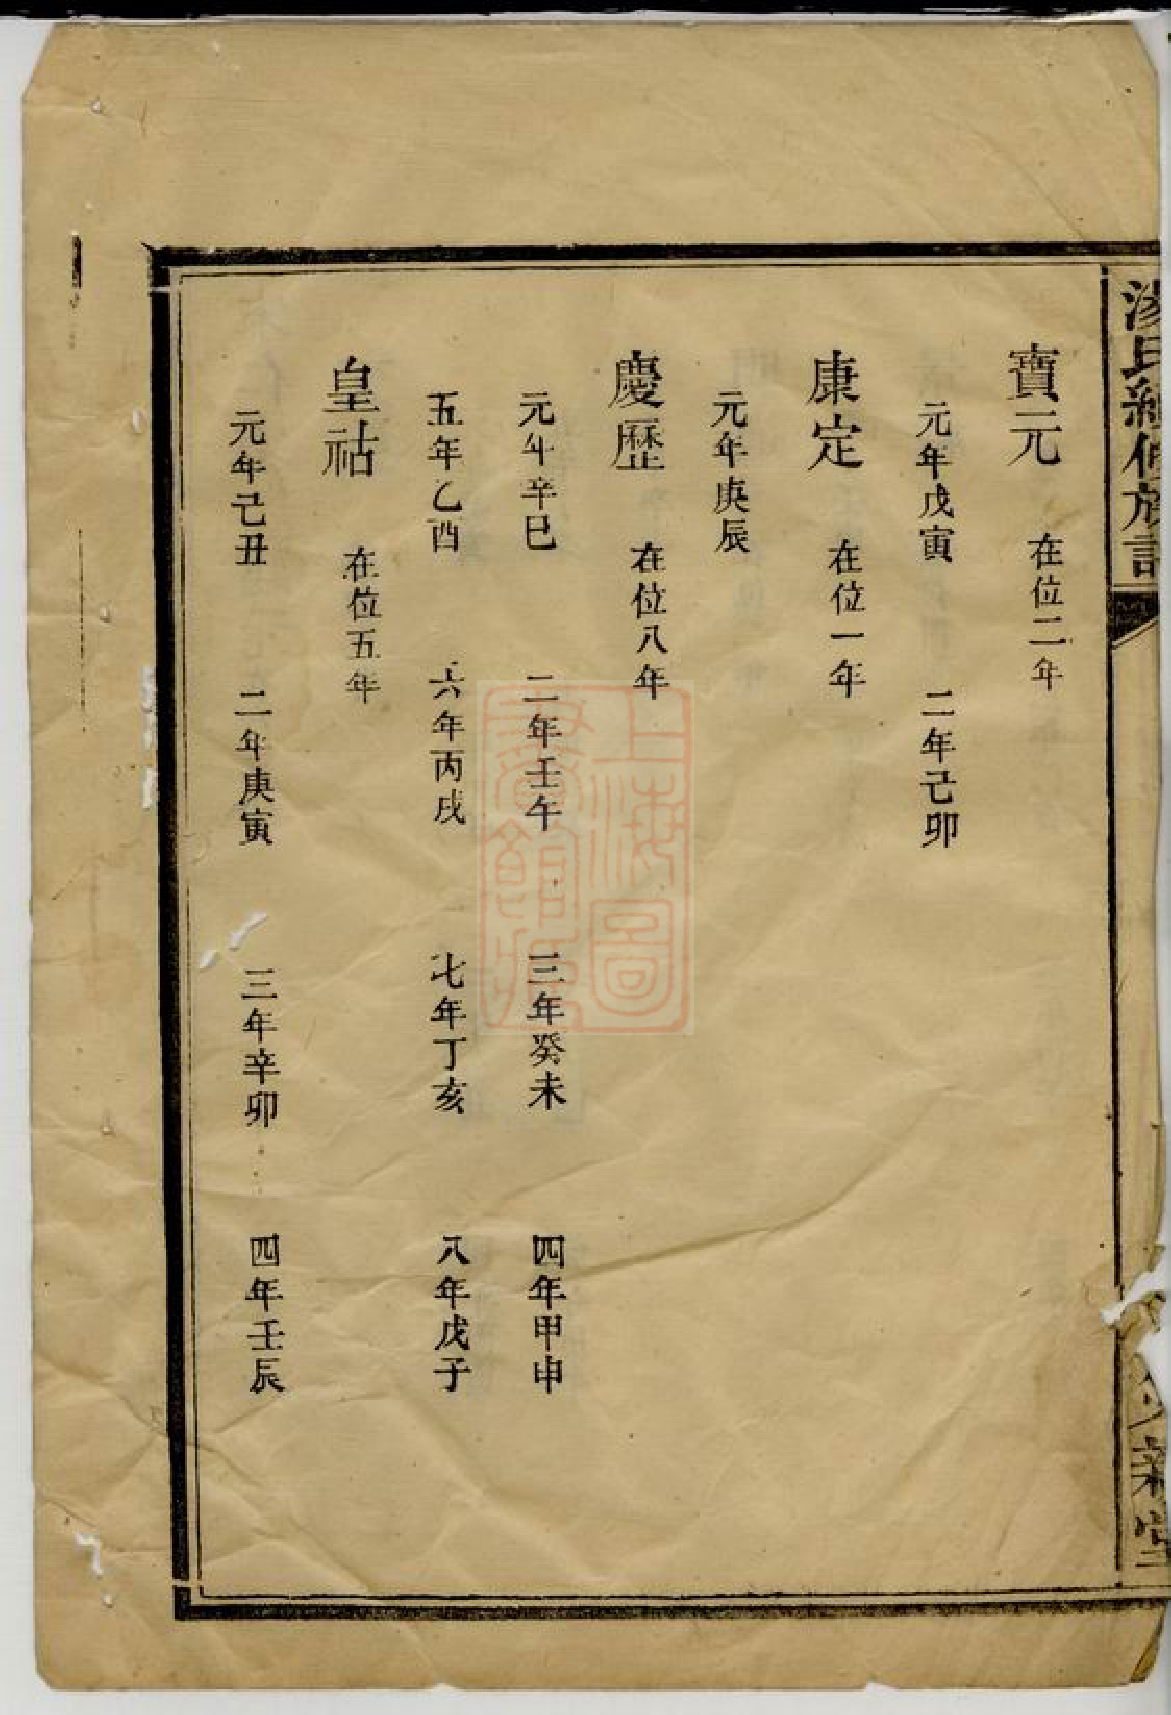 湯氏續修族譜
新堂
寶元 在位二年
元年戊寅 二年己卯
康定 在位一年
元年庚辰
慶歷 在位八年
元年辛巳 二年壬午 三年癸未 四年甲申
五年乙酉 六年丙戌 七年丁亥 八年戊子
皇祜 在位五年
元年己丑 二年庚寅 三年辛卯 四年壬辰
上海圖
書館藏